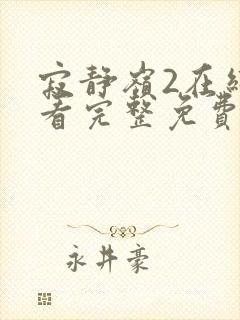 寂静嶺2在
看完整免費
永井豪